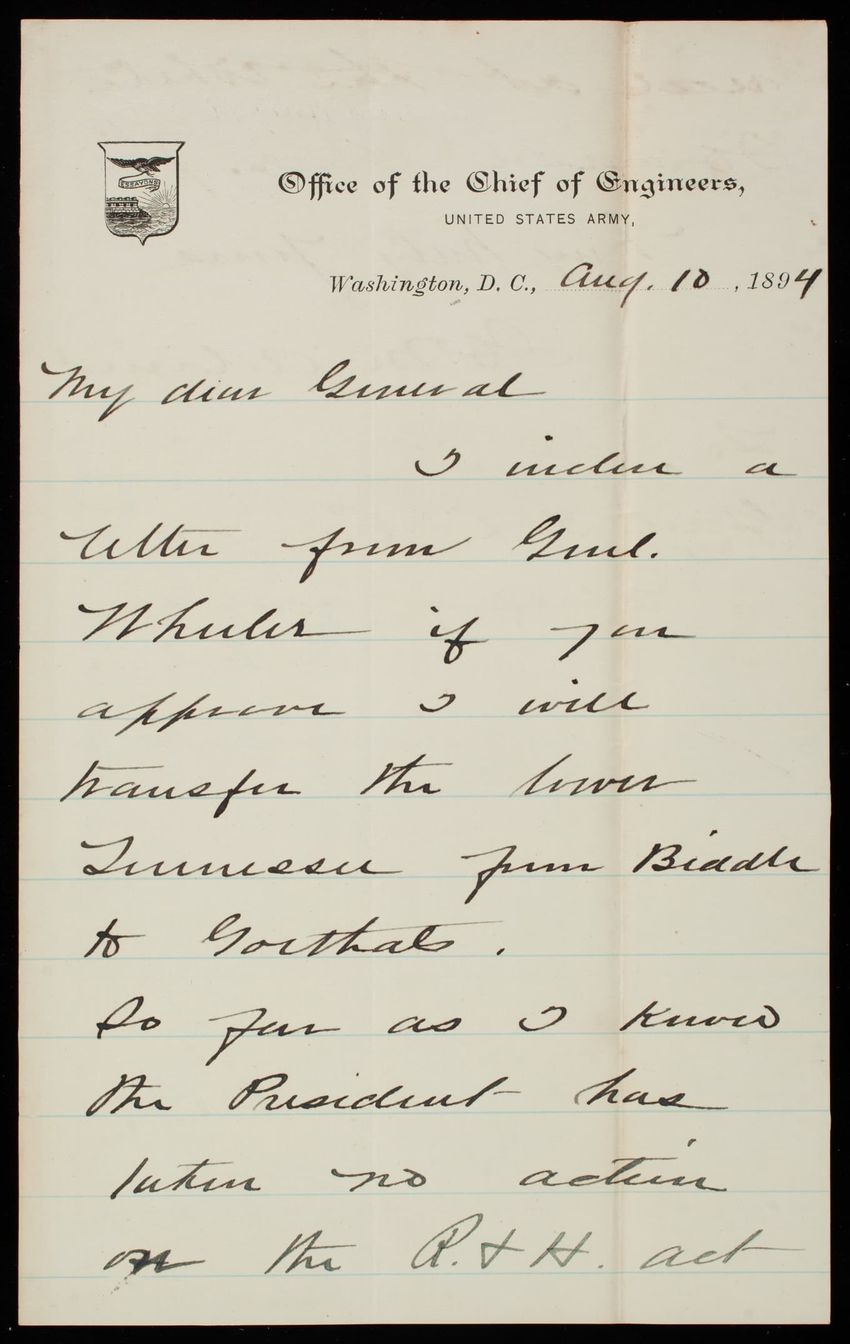 ESSAYONS
Office of the Chief of Engineers,
UNITED STATES ARMY,
Washington, D. C., Aug. 10, 1894
My dear General
I inclose a
letter from Genl.
Wheeler if you
approve I will
transfer the lower
Tennessee from Biddle
to Goethals.
So far as I know
the President has
taken no action
on the R. & H. act